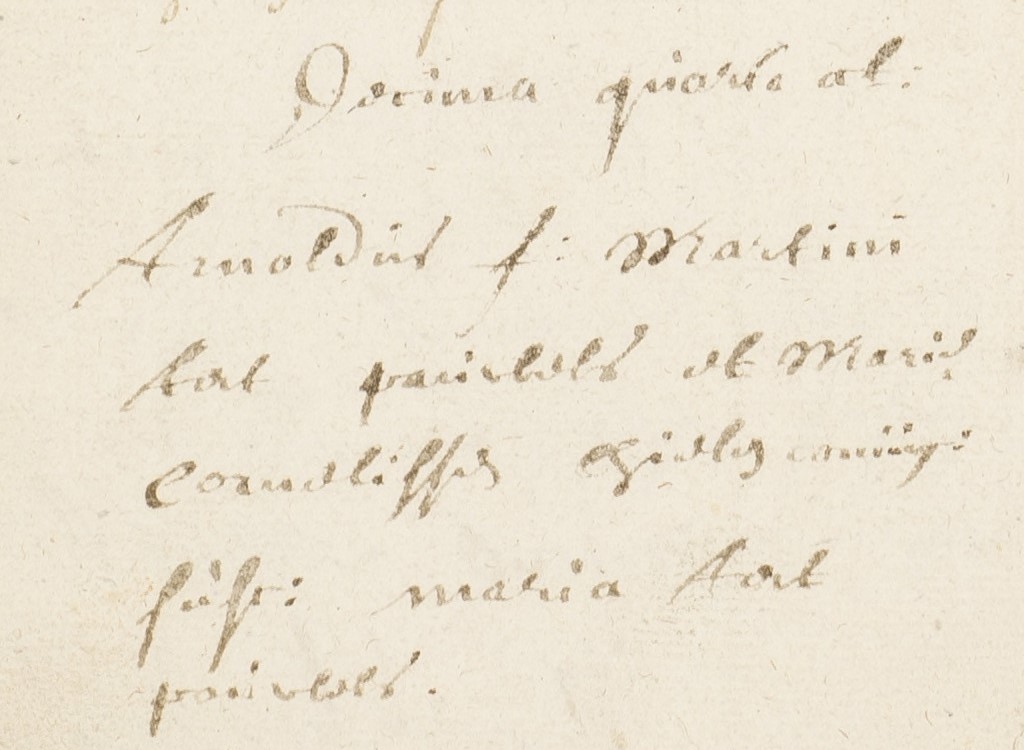 Decima quarta ob:
Arnoldus f: Martini
Aert pauwels et Marie
Cornelissen Gielis coniug:
susc: maria Aert
pauwels.